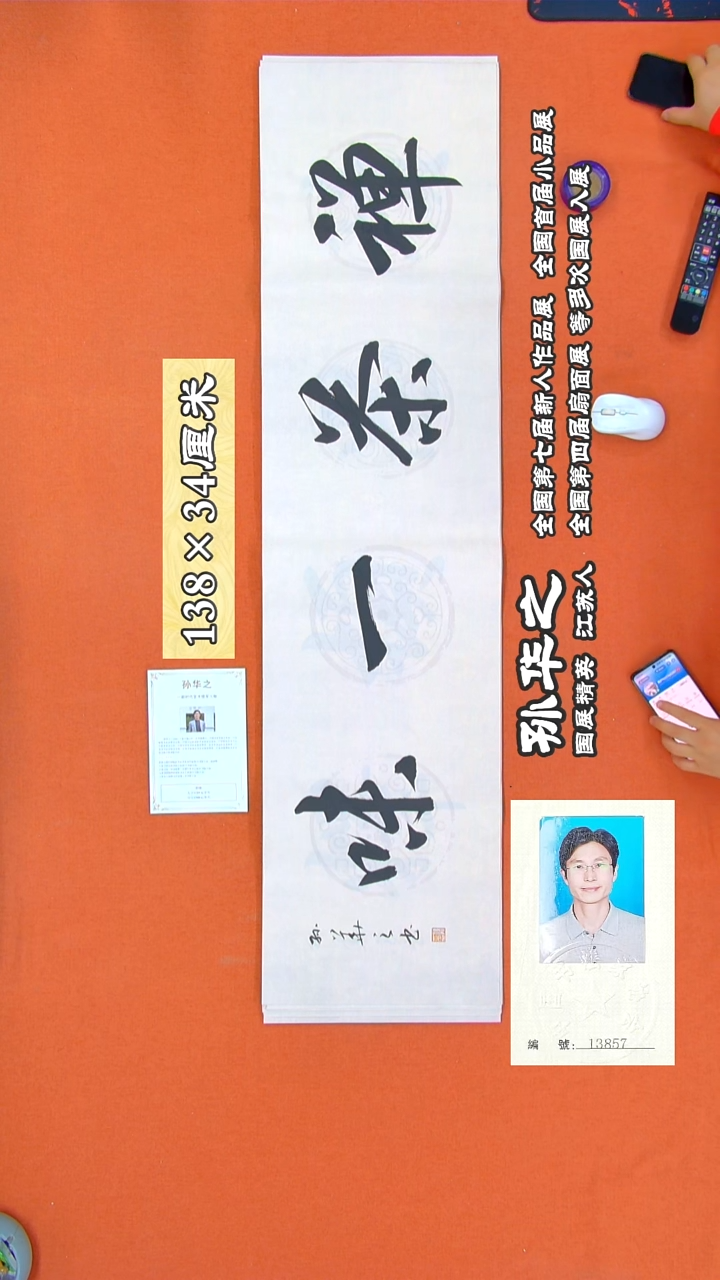 138×34厘米
孙华之
禅茶一味
孙華之书
孙华之
国展精英 江苏人
全国第七届新人作品展 全国首届小品展
全国第四届扇面展 等多次国展入展
編 號: 13857